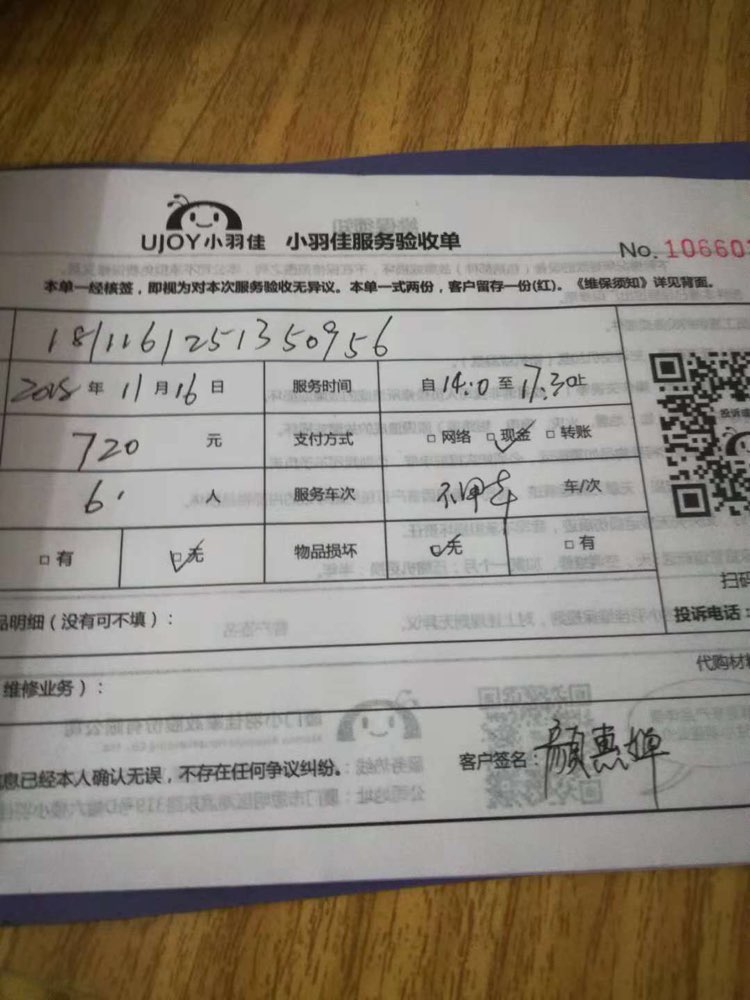 UJOY小羽佳 小羽佳服务验收单
No. 10660
本单一经核签，即视为对本次服务验收无异议。本单一式两份，客户留存一份(红)。《维保须知》详见背面。
1811161251350956
2018 年 11 月 16 日 服务时间 自 14:0 至 17:30止
720 元 支付方式 □ 网络 □ 现金 □ 转账
6 人 服务车次 不用车 车/次
□ 有 □ 无 物品损坏 □ 无 □ 有
扫码
品明细（没有可不填）：
投诉电话：
代购材料
维修业务）：
息已经本人确认无误，不存在任何争议纠纷。
客户签名：颜惠婵